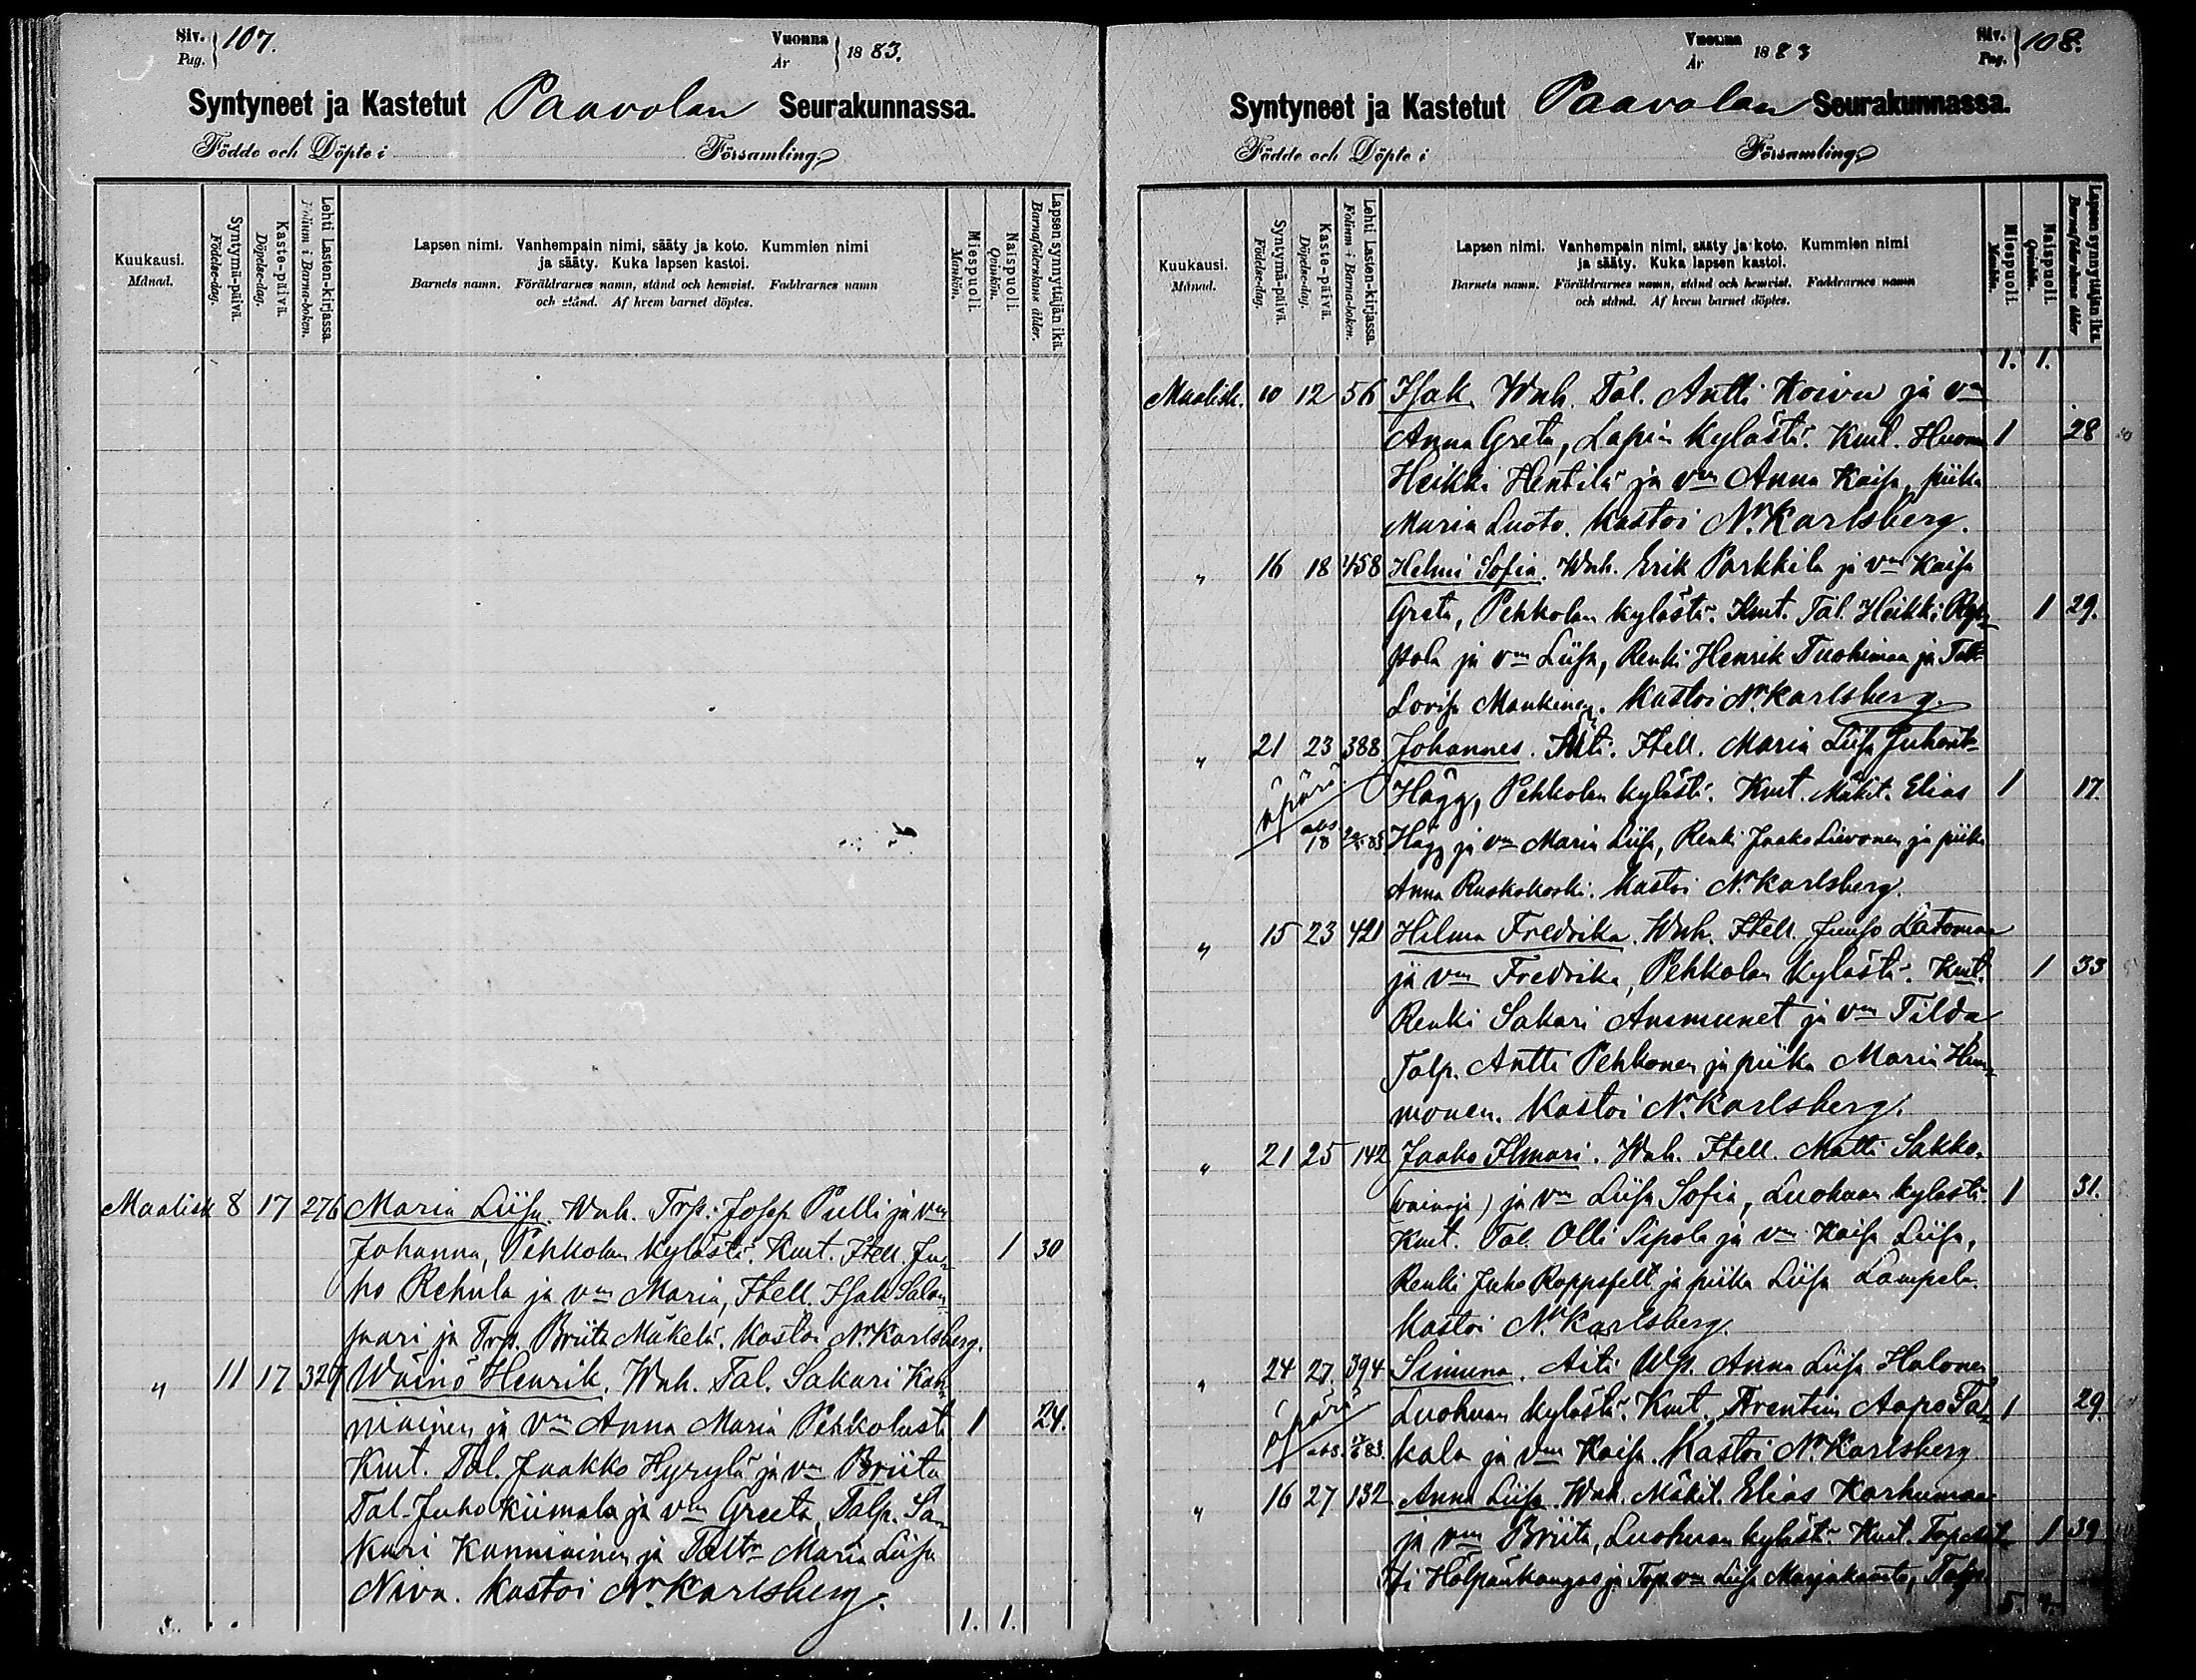 Siv. Pag. 107.
Vuonna År 1883.
Syntyneet ja Kastetut Paavolan Seurakunnassa.
Födde och Döpte i Församling.
Kuukausi. Månad.
Syntymä-päivä. Födelse-dag.
Kaste-päivä. Döpelse-dag.
Lehti Lasten-kirjassa. Folium i Barna-boken.
Lapsen nimi. Vanhempain nimi, sääty ja koto. Kummien nimi
ja sääty. Kuka lapsen kastoi.
Barnets namn. Föräldrarnes namn, stånd och hemvist. Faddrarnes namn
och stånd. Af hvem barnet döptes.
Miespuoli. Mankön.
Naispuoli. Qvinkön.
Lapsen synnyttäjän ikä. Barnaföderskans ålder.
Maalisk 8 17 276 Maria Liisa. Wnh. Trp. Josep Pulli ja vm
Johanna, Pehkolan kylästä. Kmt. Itell. Ju- 1 30
ho Rehula ja vm Maria, Itell. Isak Salon-
saari ja Trp. Briita Mäkelä. Kastoi Nr Karlsberg.
" 11 17 327 Wäinö Henrik. Wnh. Tal. Sakari Kan-
niainen ja vm Anna Maria Pehkolasta 1 24.
Kmt. Tal. Jaakko Hyrylä ja vm Briita
Tal. Juho Kiimala ja vm Greeta, Talp. Sa-
kari Kanniainen ja Taltr Maria Liisa
Niva. Kastoi Nr Karlsberg.
1. 1.
Vuonna År 1883
Siv. Pag. 108.
Syntyneet ja Kastetut Paavolan Seurakunnassa.
Födde och Döpte i Församling.
Kuukausi. Månad.
Syntymä-päivä. Födelse-dag.
Kaste-päivä. Döpelse-dag.
Lehti Lasten-kirjassa. Folium i Barna-boken.
Lapsen nimi. Vanhempain nimi, sääty ja koto. Kummien nimi
ja sääty. Kuka lapsen kastoi.
Barnets namn. Föräldrarnes namn, stånd och hemvist. Faddrarnes namn
och stånd. Af hvem barnet döptes.
Miespuoli. Mankön.
Naispuoli. Qvinkön.
Lapsen synnyttäjän ikä. Barnaföderskans ålder
1. 1.
Maalisk. 10 12 56 Isak. Wnh. Tal. Antti Koivu ja vm
Anna Greta, Lapin kylästä. Kmt. Huon 1 28
Heikki Hentilä ja vm Anna Kaisa, piika
Maria Luoto. Kastoi Nr Karlsberg.
" 16 18 458 Helmi Sofia. Wnh. Erik Parkkila ja vm Kaisa
Greta, Pehkolan kylästä. Kmt. Tal. Heikki 1 29.
ja vm Liisa, Renki Henrik Tuohimaa ja
Lovisa Mankinen. Kastoi Nr Karlsberg.
" 21 23 388 Johannes. Äiti. Itell. Maria Liisa
äpärä Hägg, Pehkolan kylästä. Kmt. Mäkit. Elias 1 17.
abs. 18 Hägg ja vm Maria Liisa, Renki Jaako Lievonen ja piika
Anna Ruskokoski. Kastoi Nr Karlsberg.
" 15 23 421 Hilma Fredrika. Wnh. Itell. Juuso Latomaa
ja vm Fredrika, Pehkolan kylästä. Kmt. 1 33
Renki Sakari Ansmunet ja vm Tilda
Talp. Antti Pehkonen ja piika Maria Hem-
monen. Kastoi Nr Karlsberg.
" 21 25 142 Jaako Ilmari. Wnh. Itell. Matti Sakko.
(vainaja) ja vm Liisa Sofia, Luohuan kylästä 1 31.
Kmt. Tal. Olli Sipola ja vm Kaisa Liisa,
Renki Juho Roppsfelt ja piika Liisa Lampela.
Kastoi Nr Karlsberg.
" 24 27. 394 Simuna. Äiti Anna Liisa Halonen
äpärä Luohuan kylästä. Kmt. Arentim Aapo Ta- 1 29.
abs. kala ja vm Kaisa. Kastoi Nr Karlsberg.
" 16 27 132 Anna Liisa. Wnh. Mäkit. Elias Karhumaa
ja vm Briita, Luohuan kylästä. Kmt. Torp. Mat- 1 39
ti Hölpänkangas ja Torp. vm Liisa Marjakaarto, Talp.
5. 4.